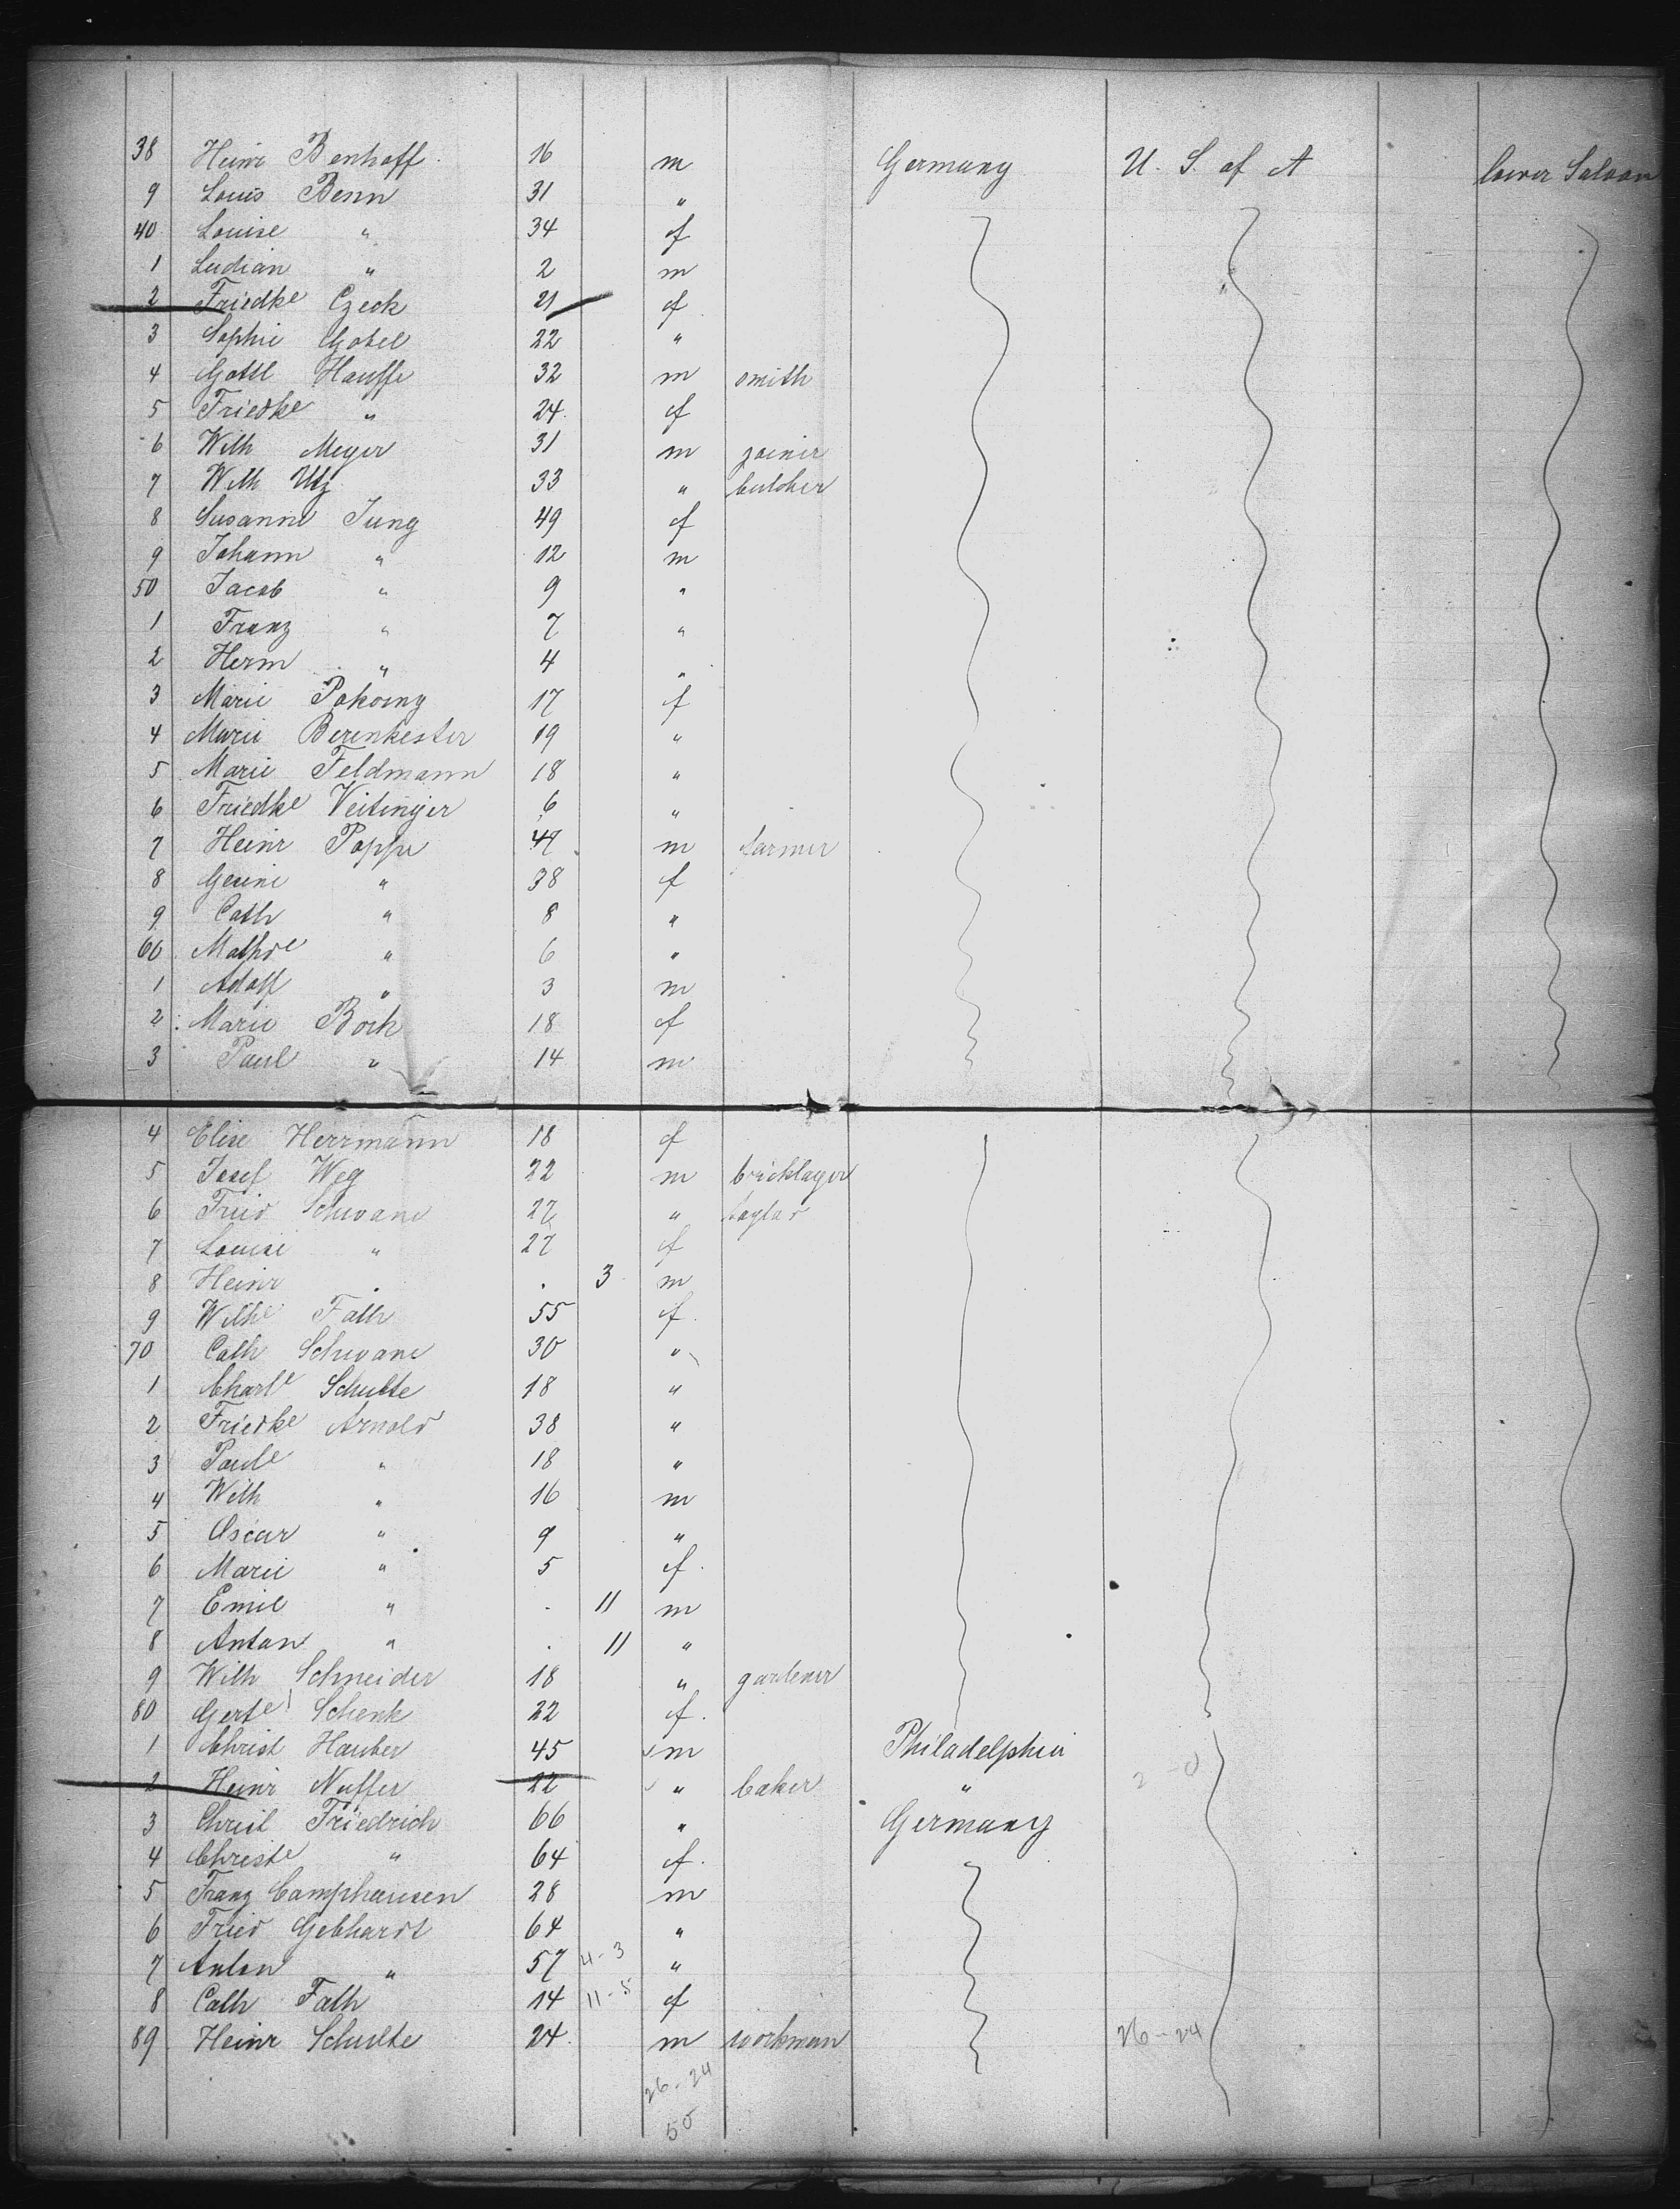 38 Heinr Benhoff 16 m Germany U. S. of A lower Saloon
9 Louis Benn 31 "
40 Louise " 34 f
1 Ludian " 2 m
2 Friedke Czeck 21 f
3 Sophie Gobel 22 "
4 Gottl Hauffe 32 m smith
5 Friedke " 24 f
6 Wilh Meyer 31 m joiner
7 Wilh Utz 33 " butcher
8 Susanne Jung 49 f
9 Johann " 12 m
50 Jacob " 9 "
1 Franz " 7 "
2 Herm " 4 "
3 Marie 17 f
4 Marie Berenkester 19 "
5 Marie Feldmann 18 "
6 Friedke Veitinger 6 "
7 Heinr Poppe 47 m farmer
8 Gesine " 38 f
9 Cath " 8 "
60 Mathde " 6 "
1 Adolf " 3 m
2 Marie Bock 18 f
3 Paul " 14 m
4 Elise Herrmann 18 f
5 Josef Weg 22 m bricklayer
6 Fried Schwane 27 " taylor
7 Louise " 27 f
8 Heinr . . 3 m
9 Wilhe Fath 55 f
70 Cath Schwane 30 "
1 Charle Schulte 18 "
2 Friedke Arnold 38 "
3 Paule " 18 "
4 Wilh " 16 m
5 Oscar " 9 "
6 Marie " 5 f
7 Emil " . 11 m
8 Anton " . 11 "
9 Wilh Schneider 18 " gardener
80 Gerte Schenk 22 f
1 Christ Hauber 45 m Philadelphia
2 Heinr Nuffer 22 " baker " 2-0
3 Christ Friedrich 66 " Germany
4 Christe " 64 f
5 Franz Camphausen 28 m
6 Fried Gebhardt 64 "
7 Anton " 57 4-3 "
8 Cath Fath 14 11-5 f
89 Heinr Schulte 24 m workman 26-24
26-24
50